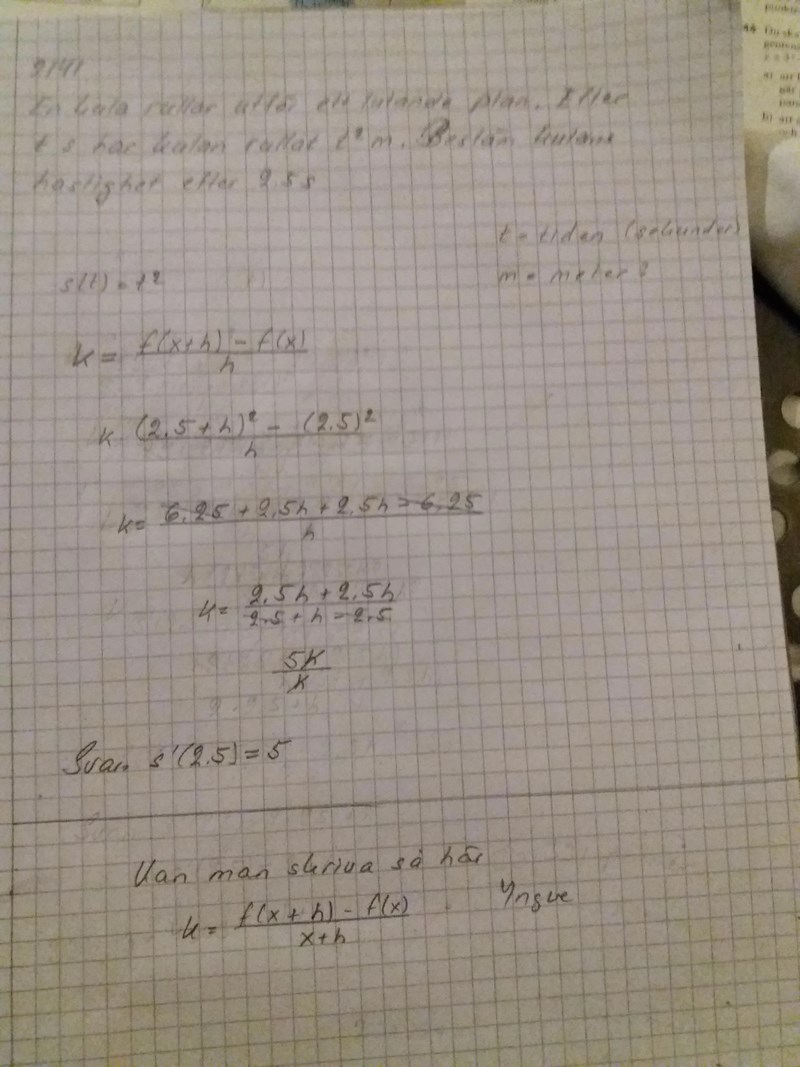 2141
En kula rullar utför ett lutande plan. Efter
t s har kulan rullat t² m. Bestäm kulans
hastighet efter 2.5 s
t = tiden (sekunder)
m = meter?
s(t) = t²
k = f(x+h) - f(x) / h
k (2.5+h)² - (2.5)² / h
k = 6.25 + 2.5h + 2.5h - 6.25 / h
k = 2.5h + 2.5h / 2.5+h-2.5
5h / h
Svar. s'(2.5) = 5
Kan man skriva så här
k = f(x+h) - f(x) / x+h
Yngve